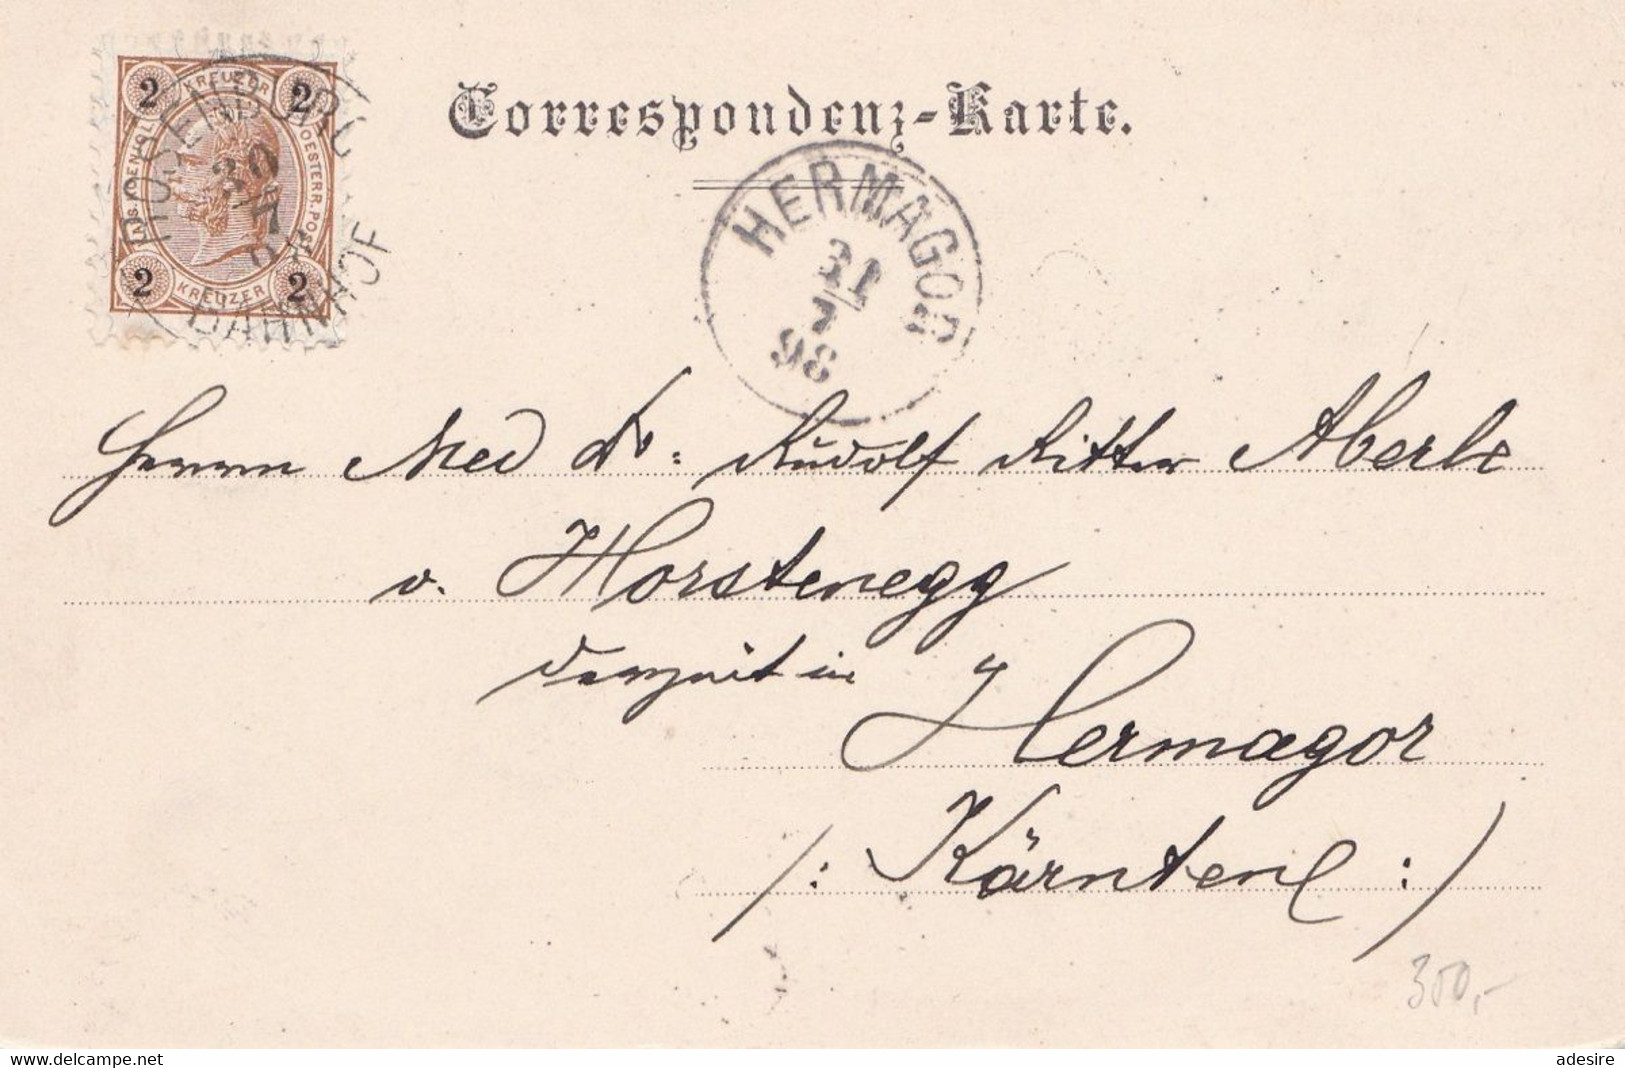 Correspondenz-Karte.
2 KREUZER 2
KAIS. KOENIGL. OESTERR. POST
2 KREUZER 2
ROSENBURG
30
7
BAHNHOF
HERMAGOR
31
7
98
Herrn Med Dr. Rudolf Ritter Aberle
v. Horstenegg
derzeit in Hermagor
/: Kärnten :/
350,-
adesire
www.delcampe.net